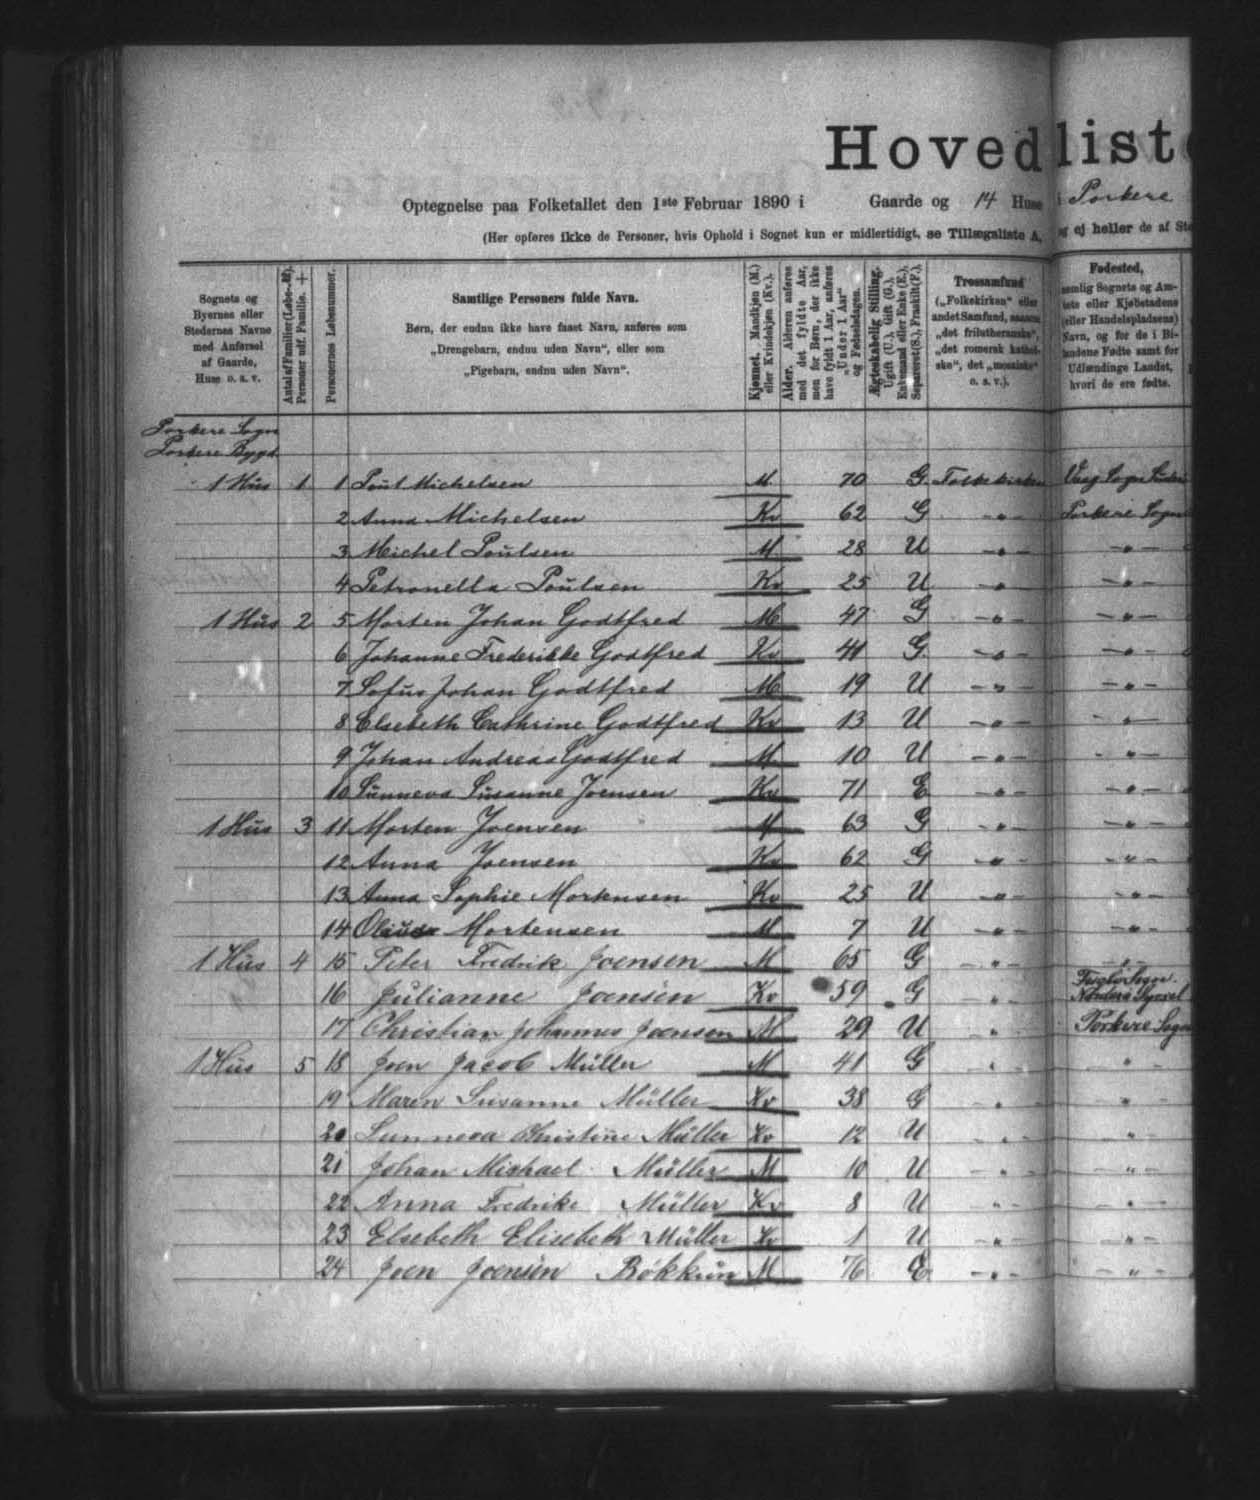 Hovedliste
Optegnelse paa Folketallet den 1ste Februar 1890 i Gaarde og 14 Huse i Porkere
(Her opføres ikke de Personer, hvis Ophold i Sognet kun er midlertidigt, se Tillægsliste A, og ej heller de af
Sognets og Byernes eller Stedernes Navne med Anførsel af Gaarde, Huse o. s. v.
Antal af Familier (Løbe-№). Personer udf. Familie. +
Personernes Løbenummer.
Samtlige Personers fulde Navn.
Børn, der endnu ikke have faaet Navn, anføres som
„Drengebarn, endnu uden Navn", eller som
„Pigebarn, endnu uden Navn".
Kjønnet. Mandkjøn (M.) eller Kvindekjøn (Kv.).
Alder. Alderen anføres med det fyldte Aar, men for Børn, der ikke have fyldt 1 Aar, anføres „Under 1 Aar" og Fødselsdagen.
Ægteskabelig Stilling. Ugift (U.), Gift (G.), Enkemand eller Enke (E.), Separeret (S.), Fraskilt (F.).
Trossamfund („Folkekirken" eller andet Samfund, saasom „det frilutheranske", „det romersk katholske", det „mosaiske" o. s. v.).
Fødested, nemlig Sognets og Amtets eller Kjøbstadens (eller Handelspladsens) Navn, og for de i Bilandene Fødte samt for Udlændinge Landet, hvori de ere fødte.
Porkere Sogn
Porkere Bygd
1 Hus 1 1 Poul Michelsen M 70 G Folkekirken Vaag Sogn
2 Anna Michelsen Kv 62 G - " - Porkere Sogn
3 Michel Poulsen M 28 U - " - - " -
4 Petronella Poulsen Kv 25 U - " - - " -
1 Hus 2 5 Morten Johan Godtfred M 47 G - " - - " -
6 Johanne Frederikke Godtfred Kv 41 G - " - - " -
7 Sofus Johan Godtfred M 19 U - " - - " -
8 Elsebeth Cathrine Godtfred Kv 13 U - " - - " -
9 Johan Andreas Godtfred M 10 U - " - - " -
10 Sunneva Susanne Joensen Kv 71 E - " - - " -
1 Hus 3 11 Morten Joensen M 63 G - " - - " -
12 Anna Joensen Kv 62 G - " - - " -
13 Anna Sophie Mortensen Kv 25 U - " - - " -
14 Mortensen M 7 U - " - - " -
1 Hus 4 15 Peter Fredrik Joensen M 65 G - " - - " -
16 Julianne Joensen Kv 59 G - " - Fuglø Sogn. Norderø Syssel
17 Christian Johannes Joensen M 29 U " Porkere Sogn
1 Hus 5 18 Joen Jacob Müller M 41 G " "
19 Maren Susanne Müller Kv 38 G - " - "
20 Sunneva Christine Müller Kv 12 U - " - - " -
21 Johan Michael Müller M 10 U - " - - " -
22 Anna Fredrike Müller Kv 8 U - " - - " -
23 Elsebeth Elisebeth Müller Kv 1 U - " - - " -
24 Joen Joensen M 76 E - " - - " -